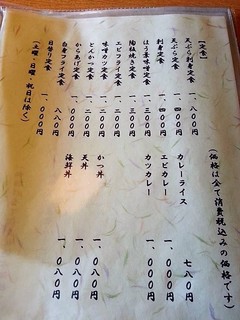 【定食】
天ぷら刺身定食 一、八〇〇円
刺身定食 一、四〇〇円
天ぷら定食 一、四〇〇円
ほう葉味噌定食 一、三〇〇円
陶板焼き定食 一、三〇〇円
エビフライ定食 一、二〇〇円
味噌カツ定食 一、二〇〇円
とんかつ定食 一、一〇〇円
からあげ定食 一、〇〇〇円
白身フライ定食 一、〇〇〇円
日替り定食 八八〇円
(土曜・日曜・祝日は除く)
(価格は全て消費税込みの価格です)
カレーライス 七八〇円
エビカレー 一、〇八〇円
カツカレー 一、〇八〇円
かつ丼 一、〇八〇円
天丼 一、〇八〇円
海鮮丼 一、〇八〇円